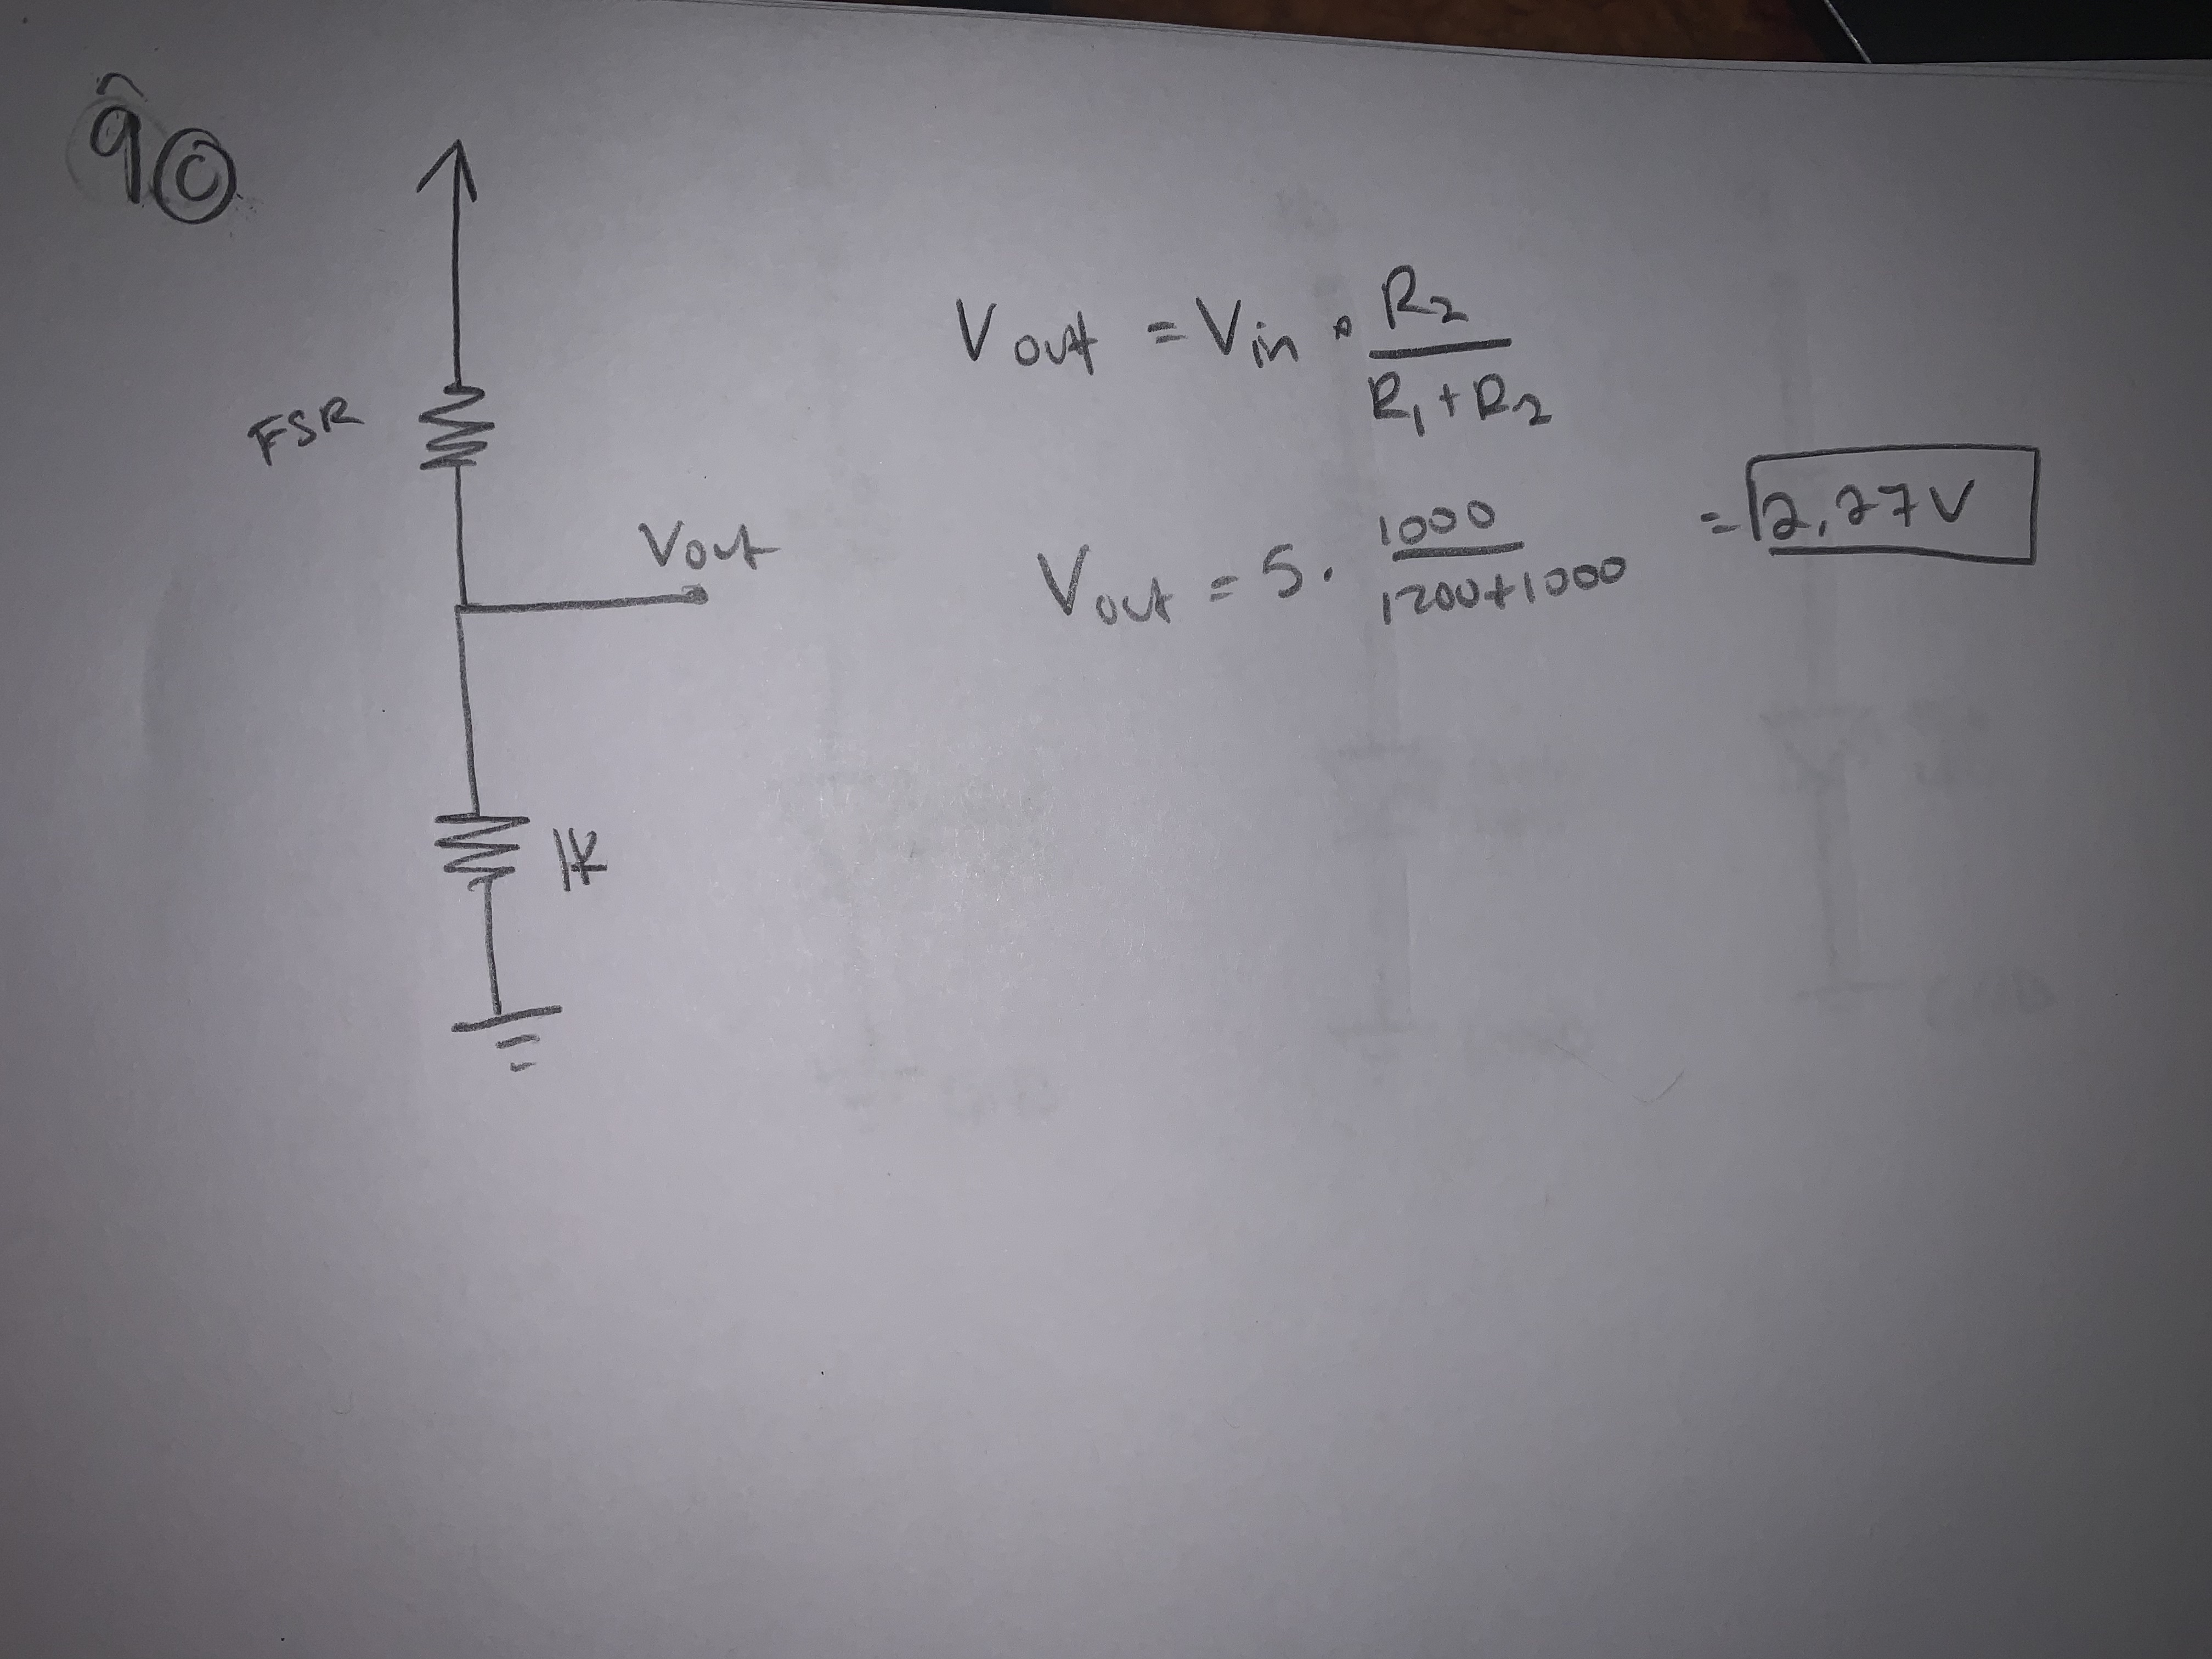 9 C
FSR
Vout
1k
Vout = Vin • R2 / R1 + R2
Vout = 5 • 1000 / 1200+1000 = 2.27V